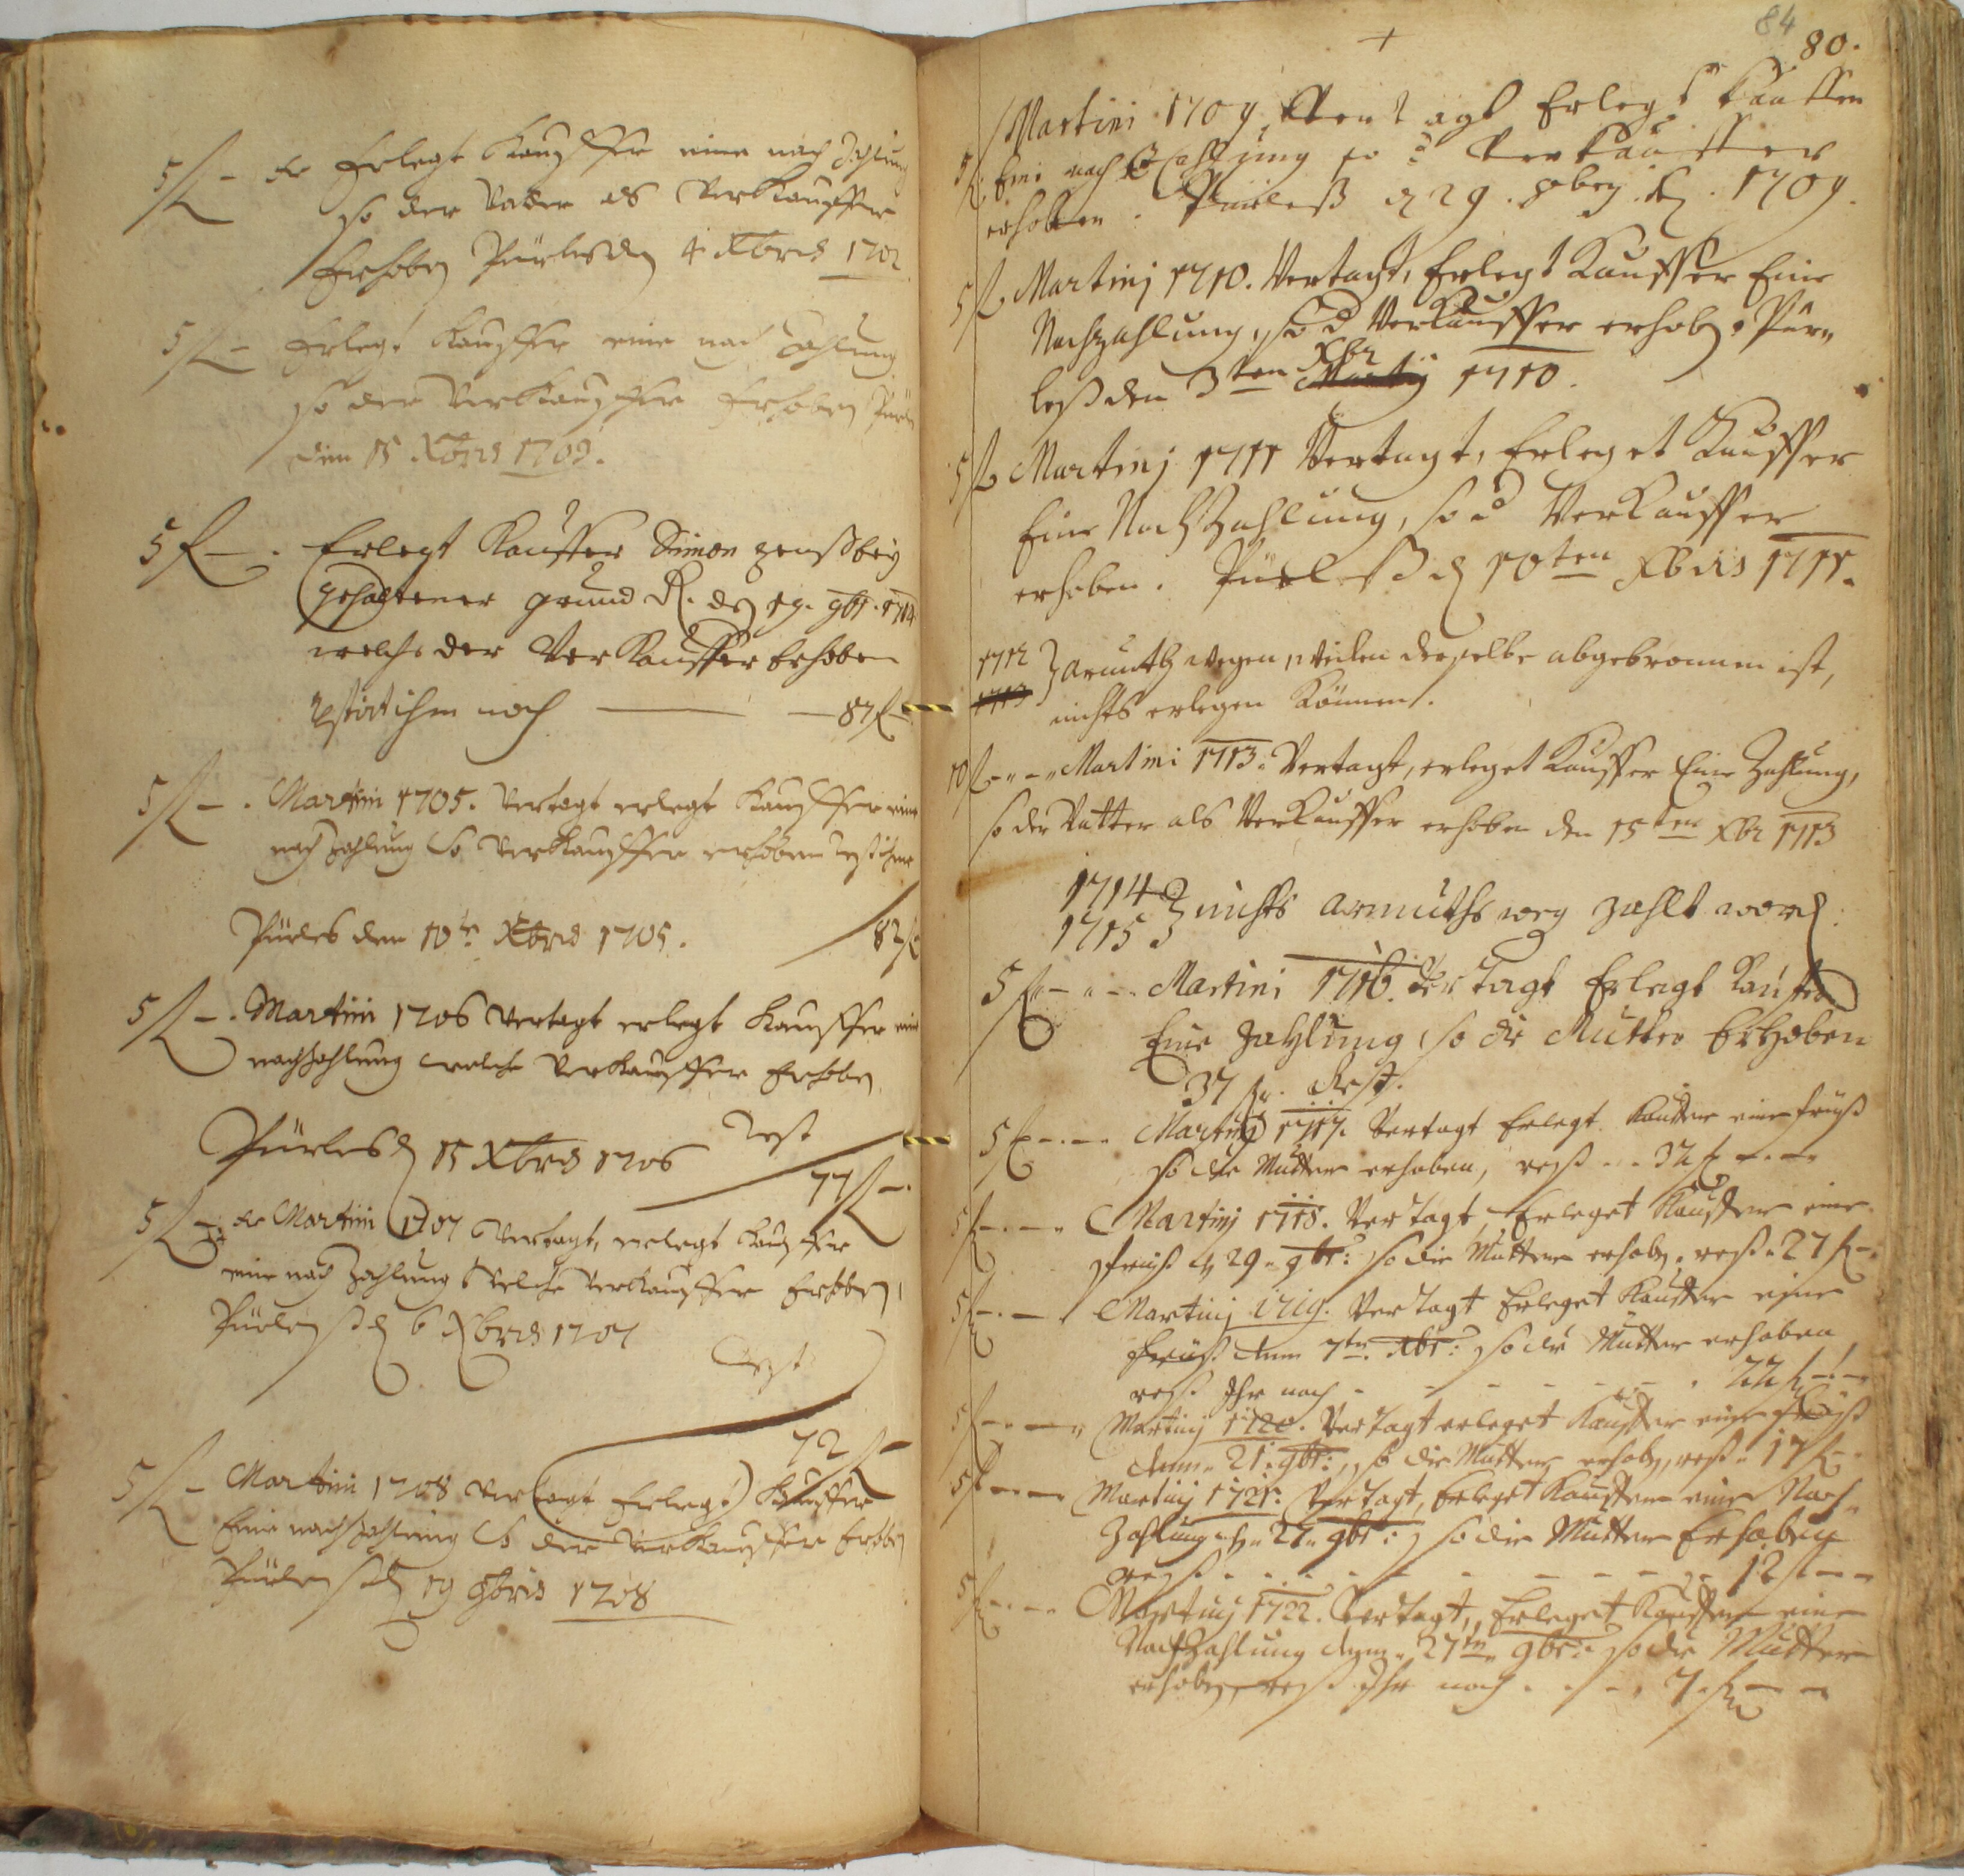 5 f – Erlegt Kauffer eine nach Zahlung
so der Vatter als Verkauffer
Erhoben Pürles den 4 Xbris 1702
5 f – Erlegt Kauffer eine nach Zahlung
so der Verkauffer Erhoben
den 15 Xbris 1703.
5 f – . Erlegt Kauffer Simon
gehaltener grund R. den 19. 9br. 1704
welche der Verkauffer Erhoben
restirt ihm noch — 87 f –
5 f – . Martini 1705. Vertagt erlegt Kauffer eine
nach Zahlung so Verkauffer erhoben rest ihme
Pürles den 10te Xbris 1705. 82 f
5 f – . Martini 1706 Vertagt erlegt Kauffer eine
nachzahlung welche Verkauffer Erhoben
Pürles d 15 Xbris 1706 Rest
77 f – .
5 f – Martini 1707 Vertagt, erlegt Kauffer
eine nach Zahlung welche Verkauffer Erhoben,
Pürleß d 6 Xbris 1707
Rest
72 f –
5 f – Martini 1708 Vertagt Erlegt Kauffer
Eine nachzahlung so der Verkauffer Erhoben
Pürleß d 19 9bris 1708
84
80.
Martini 1709 Vertagt Erlegt Kauffer
5 f Eine nach Zahlung so d Verkauffer
erhoben. Pürleß d 29. 9bris 1709.
5 f Martinj 1710. Vertagt, Erlegt Kauffer Eine
Nachzahlung, so d Verkauffer erhob. Pür„
leß den 3ten Xbr 1710.
5 f Martinj 1711 Vertagt, Erleget Kauffer
Eine Nachzahlung, so d Verkauffer
erhoben. Pürleß d 10ten Xbris 1711.
1712 } Armuth wegen, weilen derselbe abgebronnen ist,
1713 nichts erlegen können.
10 f – „ – „ Martini 1713. Vertagt, erleget Kauffer Eine Zahlung,
so der Vatter als Verkauffer erhoben den 15ten Xbr 1713
1714 } nichts armuths weg zahlt word.
1715
5 f – „ – Martini 1716. Vertagt Erlegt Kauffer
Eine Zahlung, so die Mutter Erhoben
37 f. Rest.
5 f – . – . Martinj 1717. Vertagt Erlegt Kauffer eine früst
so die Mutter erhoben, rest . . 32 f – . –
5 f – . – . Martinj 1718. Vertagt, Erleget Kauffer eine
früst d 29. 9br: so die Mutter erhob. rest „ 27 f – .
5 f – . – . Martinj 1719. Vertagt Erleget Kauffer eine
früst denn 7tn. Xbr: so die Mutter erhoben
rest Ihr noch - - - - - 22 f – . –
5 f – . – „ Martinj 1720. Vertagt erleget Kauffer eine früst
denn 21. 9br: so die Mutter erhob, rest „ 17 f – .
5 f – . – Martinj 1721. Vertagt, Erleget Kauffer eine Nach„
Zahlung d 27. 9br: so die Mutter Erhoben
rest . - - - - - 12 f – –
5 f – . – . Martinj 1722. Vertagt, Erleget Kauffer eine
Nachzahlung denn 27tn 9br: so die Mutter
erhoben, rest Ihr noch . . . 7 f – –